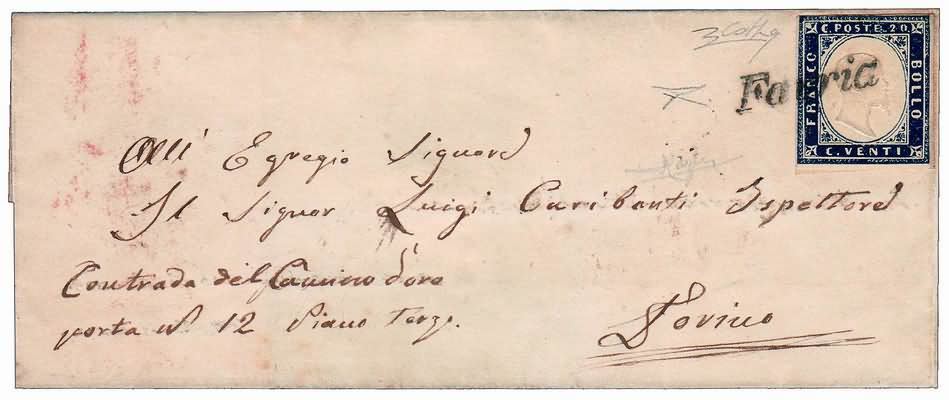 C. POSTE. 20
FRANCO
BOLLO
C. VENTI
Favria
All' Egregio Signore
Il Signor Luigi Ispettore
Contrada del Cannino d'oro
porta n° 12 Piano Terzo.
Torino